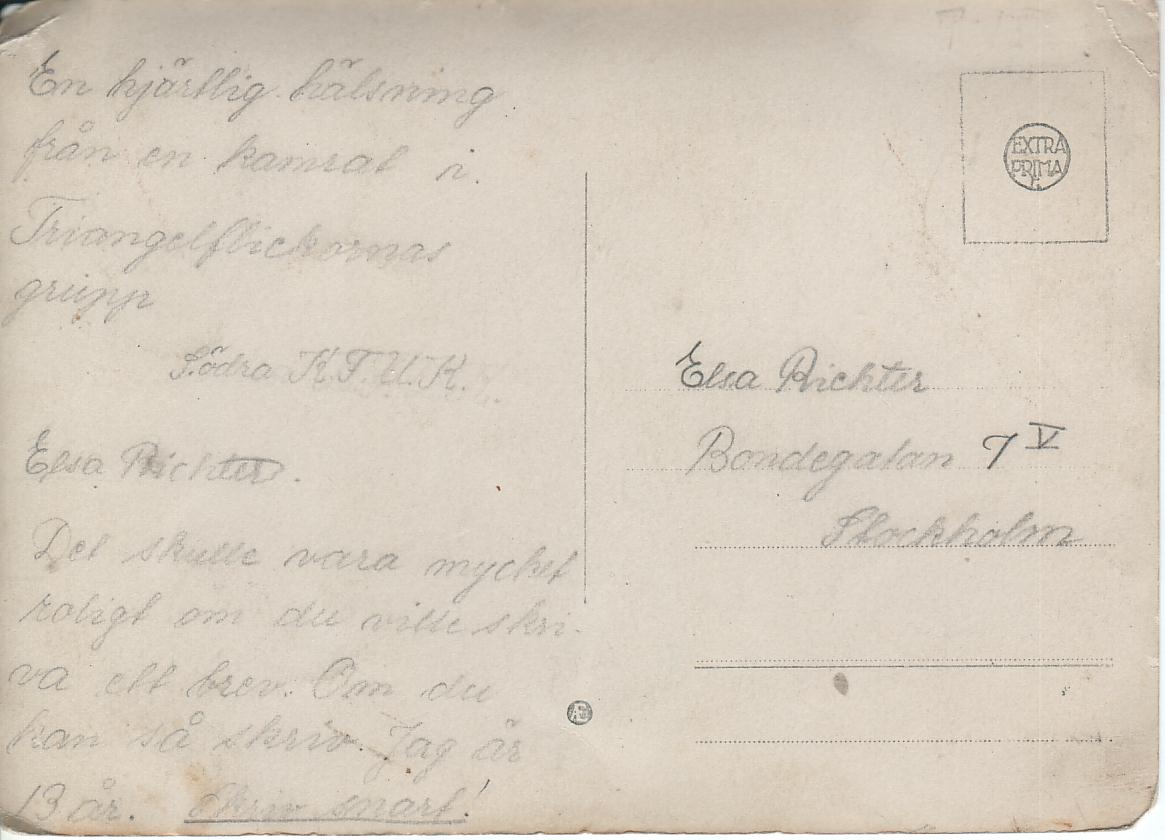 En hjärtlig hälsning
från en kamrat i
Triangelflickornas
grupp
Södra K.F.U.K.
Elsa Richter.
Det skulle vara mycket
roligt om du ville skri-
va ett brev. Om du
kan så skriv. Jag är
13 år. Skriv snart!
EXTRA
PRIMA
Elsa Richter
Bondegatan 7 V
Stockholm